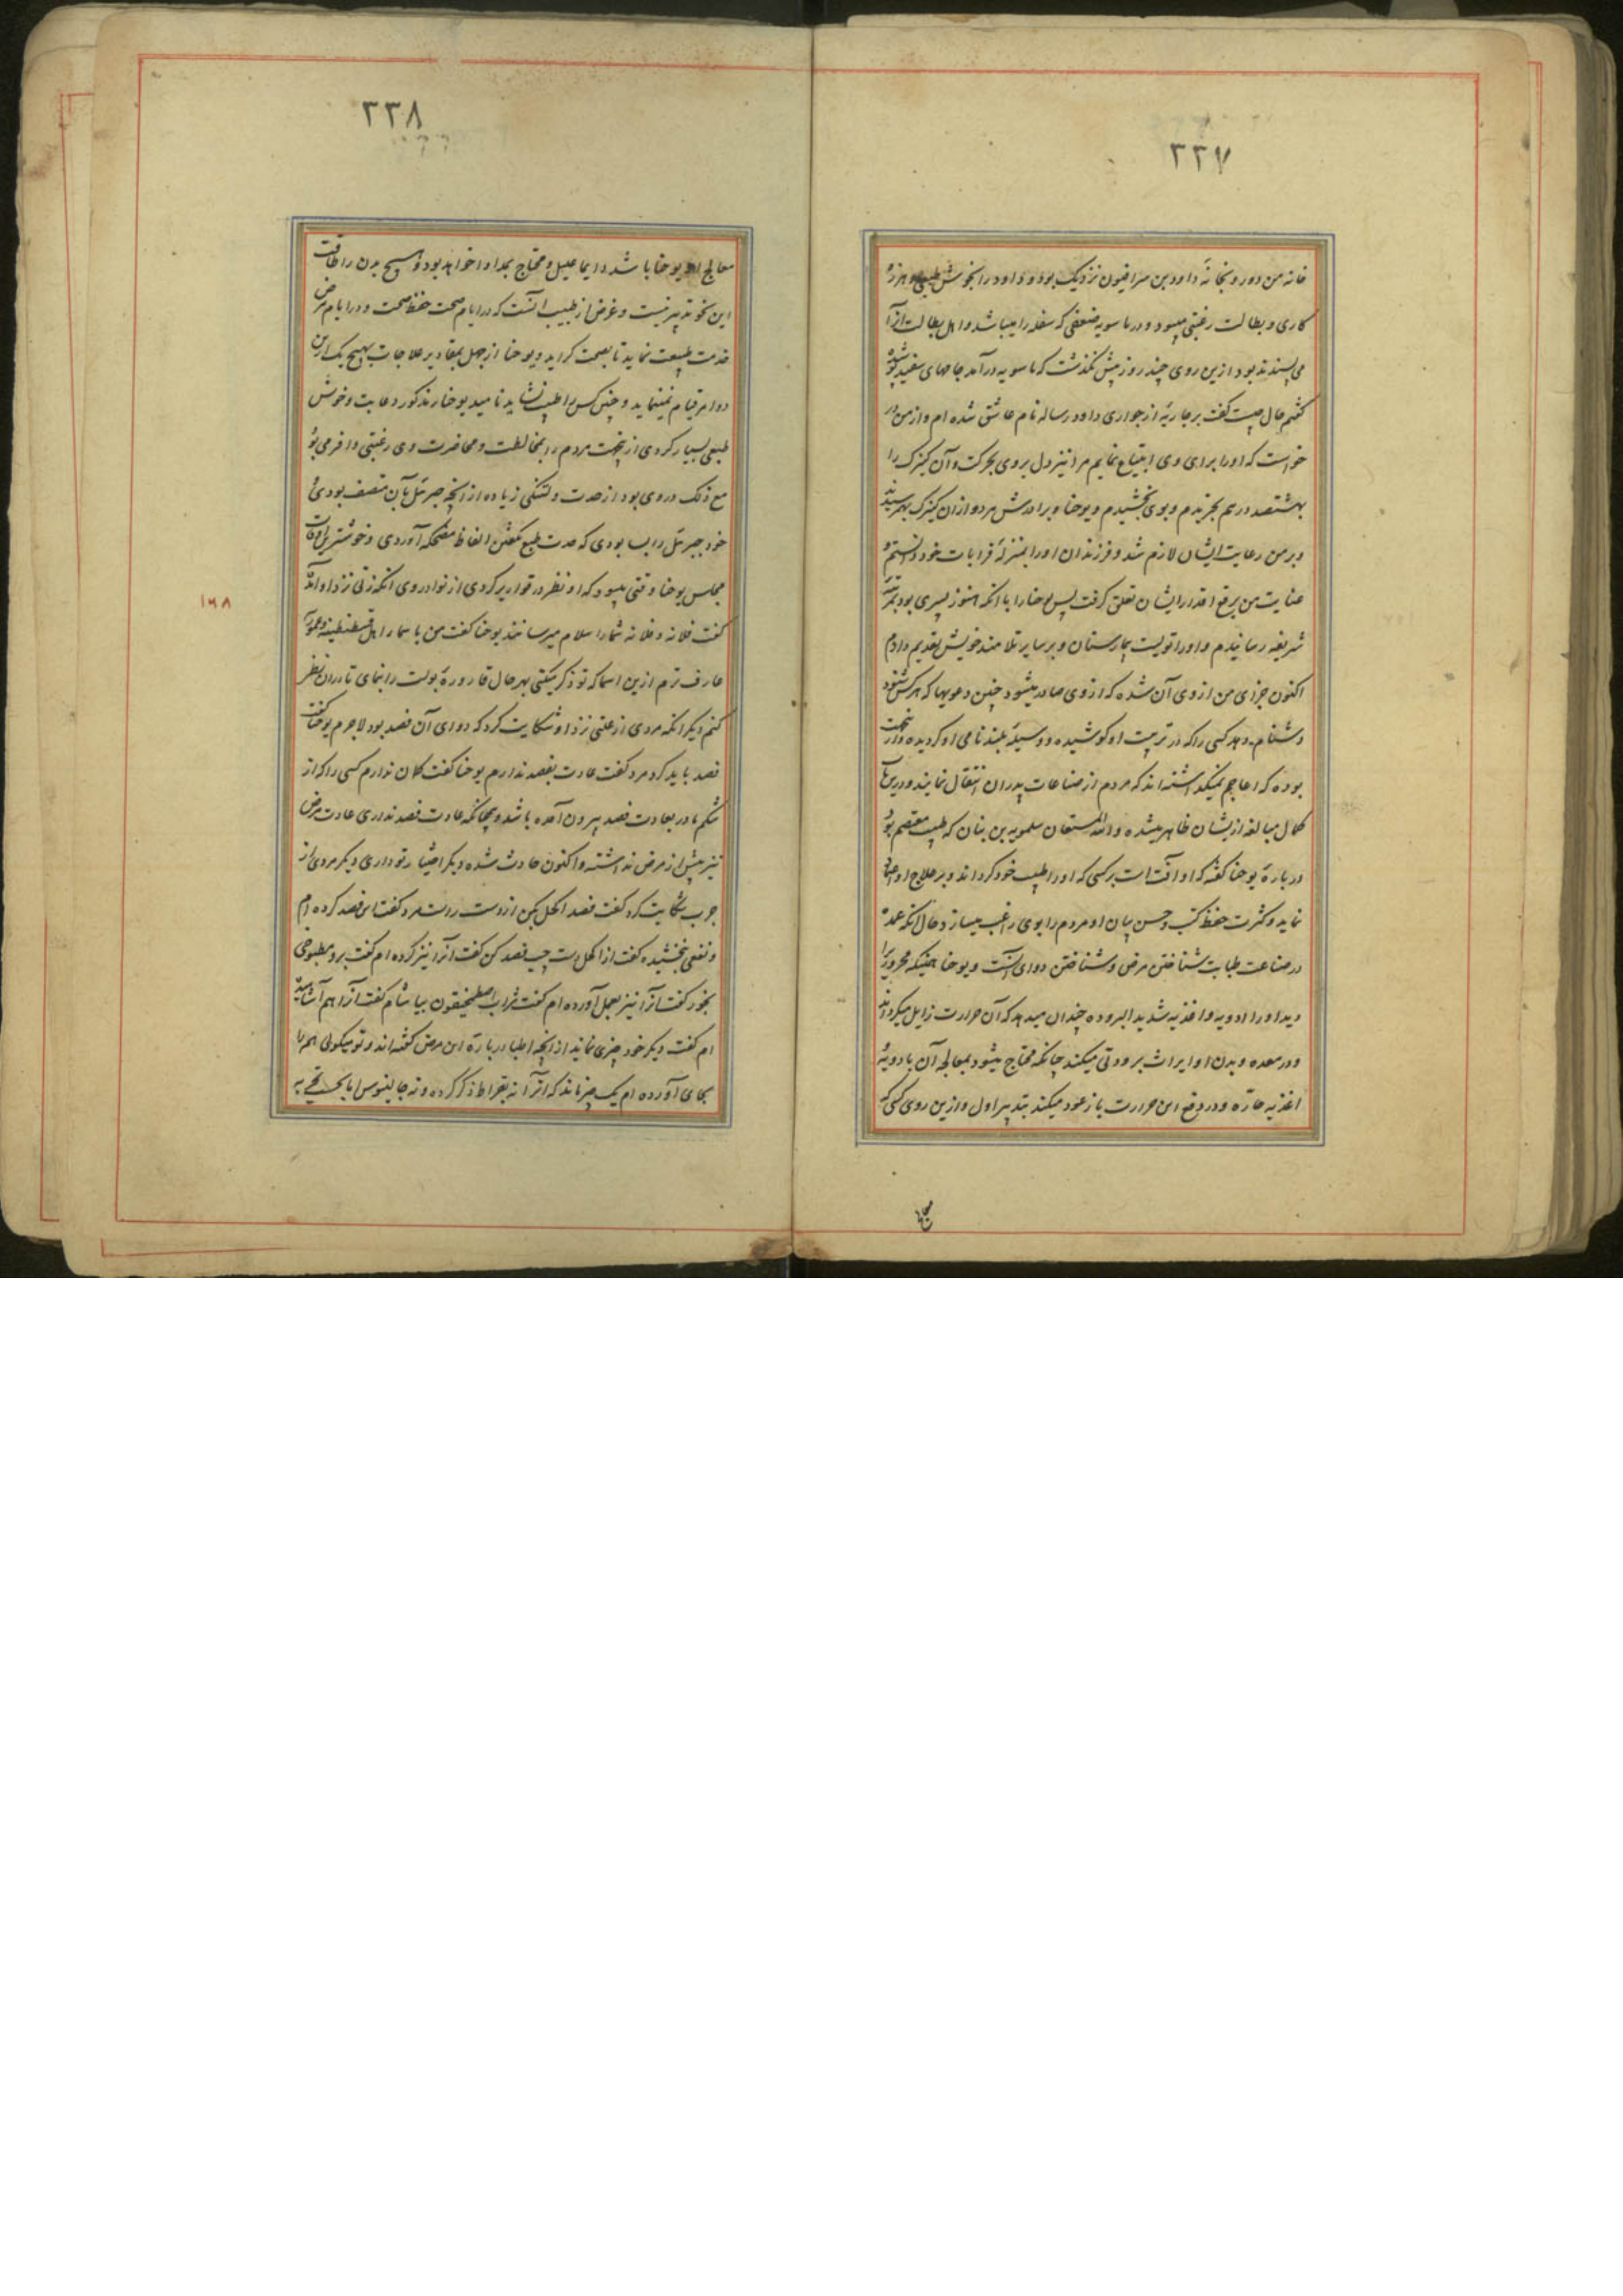 ۲۲۷
خانه من دور و بخانهٔ داود بن سرافیون نزدیک بود و داود را بخوش طبعی و هرزه
کاری و بطالت رغبتی میبود و در ماسویه ضعفی که سفله را میباشد و اهل بطالت از آ
می پسندند بود ازین روی چند روز پیش نگذشت که ماسویه درآمد جامهای سفید پوشیده
گفتم حال چیست گفت بر جاریهٔ از جواری داود رساله نام عاشق شده ام و از من در
خواست که او را برای وی ابتیاع نمایم مرا نیز دل بروی بحرکت و آن کنیزک را
بهشتصد درهم بخریدم و بوی بخشیدم و یوحنا و برادرش هر دو از آن کنیزک بهم رسیدند
و بر من رعایت ایشان لازم شد و فرزندان او را بمنزلهٔ قرابات خود دانستم و
عنایت من برفع اقدار ایشان تعلق گرفت پس یوحنا را با آنکه هنوز پسری بود بمرتبهٔ
شریفه رسانیدم و او را تولیت بیمارستان و بر سایر تلامذه خویش تقدیم دادم
اکنون جزای من از وی آن شده که از وی صادر میشود چنین دعویها که هر کس شنود
دشنام دهد کسی را که در تربیت او کوشیده و وسیلهٔ بلند نامی او گردیده و از اینجهت
بوده که اعاجم نمیگذاشته اند که مردم از صناعات پدران انتقال نمایند و درین باب
کمال مبالغه ازیشان ظاهر میشده و الله المستعان سلمویه بن بنان که طبیب معتصم بود
در بارهٔ یوحنا گفته که او آفت است بر کسی که او را طبیب خود گرداند و بر علاج او اعتماد
نماید و کثرت حفظ کتب و حسن بیان او مردم را بوی راغب میسازد و حال آنکه عمده
در صناعت طبابت شناختن مرض و شناختن دوای آنست و یوحنا همینکه محروریرا
دید او را ادویه و اغذیه شدید البروده چندان میدهد که آن حرارت زایل میگرداند
و در معده و بدن او ایراث برودتی میکند چنانکه محتاج میشود بمعالجه آن بادویهٔ
اغذیه حارّه و در دفع این حرارت باز عود میکند بتدبیر اول و ازین روی کسی که
معالج
۲۲۸
معالج او یوحنا باشد دایما علیل و محتاج بمداوا خواهد بود و هیچ بدن را طاقت
این نحو تدبیر نیست و غرض از طبیب آنست که در ایام صحت حفظ صحت و در ایام مرض
خدمت طبیعت نماید تا بصحت گراید و یوحنا از جهل بمقادیر علاجات بهیچ یک ازین
دو امر قیام نمینماید و چنین کس را طبیب نشاید نامید یوحنا مذکور دعابت و خوش
طبعی بسیار کردی ازینجهت مردم را بمخالطت و محاضرت وی رغبتی وافر می بود
مع ذلک در وی بود از حدت و لتنگی زیاده از آنچه جبرئیل بآن متصف بودی و
خود جبرئیل را بسا بودی که حدت طبع بگفتن الفاظ مضحکه آوردی و خوشترین اوقات
مجلس یوحنا وقتی میبود که او نظر در قواریر کردی از نوادر وی آنکه زنی نزد او آمد
گفت فلانه و فلانه شما را سلام میرسانند یوحنا گفت من باسمار اهل قسطنطنیه و عموریه
عارف ترم ازین اسما که تو ذکر میکنی بهر حال قارورهٔ بولت را بنمای تا در آن نظر
کنم دیگر آنکه مردی از علتی نزد او شکایت کرد که دوای آن فصد بود لاجرم یوحنا گفت
فصد باید کرد مرد گفت عادت بفصد ندارم یوحنا گفت گمان ندارم کسی را که از
شکم مادر بعادت فصد بیرون آمده باشد و چنانکه عادت فصد نداری عادت مرض
نیز پیش از مرض نداشته و اکنون حادث شده دیگر اختیار تو داری دیگر مردی از
جرب شکایت کرد گفت فصد اکحل بکن از دست راست مرد گفت این فصد کرده ام
و نفعی نبخشیده گفت از اکحل دست چپ فصد کن گفت آنرا نیز کرده ام گفت برو مطبوخی
بخور گفت آنرا نیز بعمل آورده ام گفت شراب اصطمخیقون بیاشام گفت آنرا هم آشامیده
ام گفت دیگر خود چیزی نماند از آنچه اطبا در بارهٔ این مرض گفته اند و تو میگوئی همه را
بجای آورده ام یک چیز ماند که آنرا نه بقراط ذکر کرده و نه جالینوس اما بحسب تجربه
۱۶۸